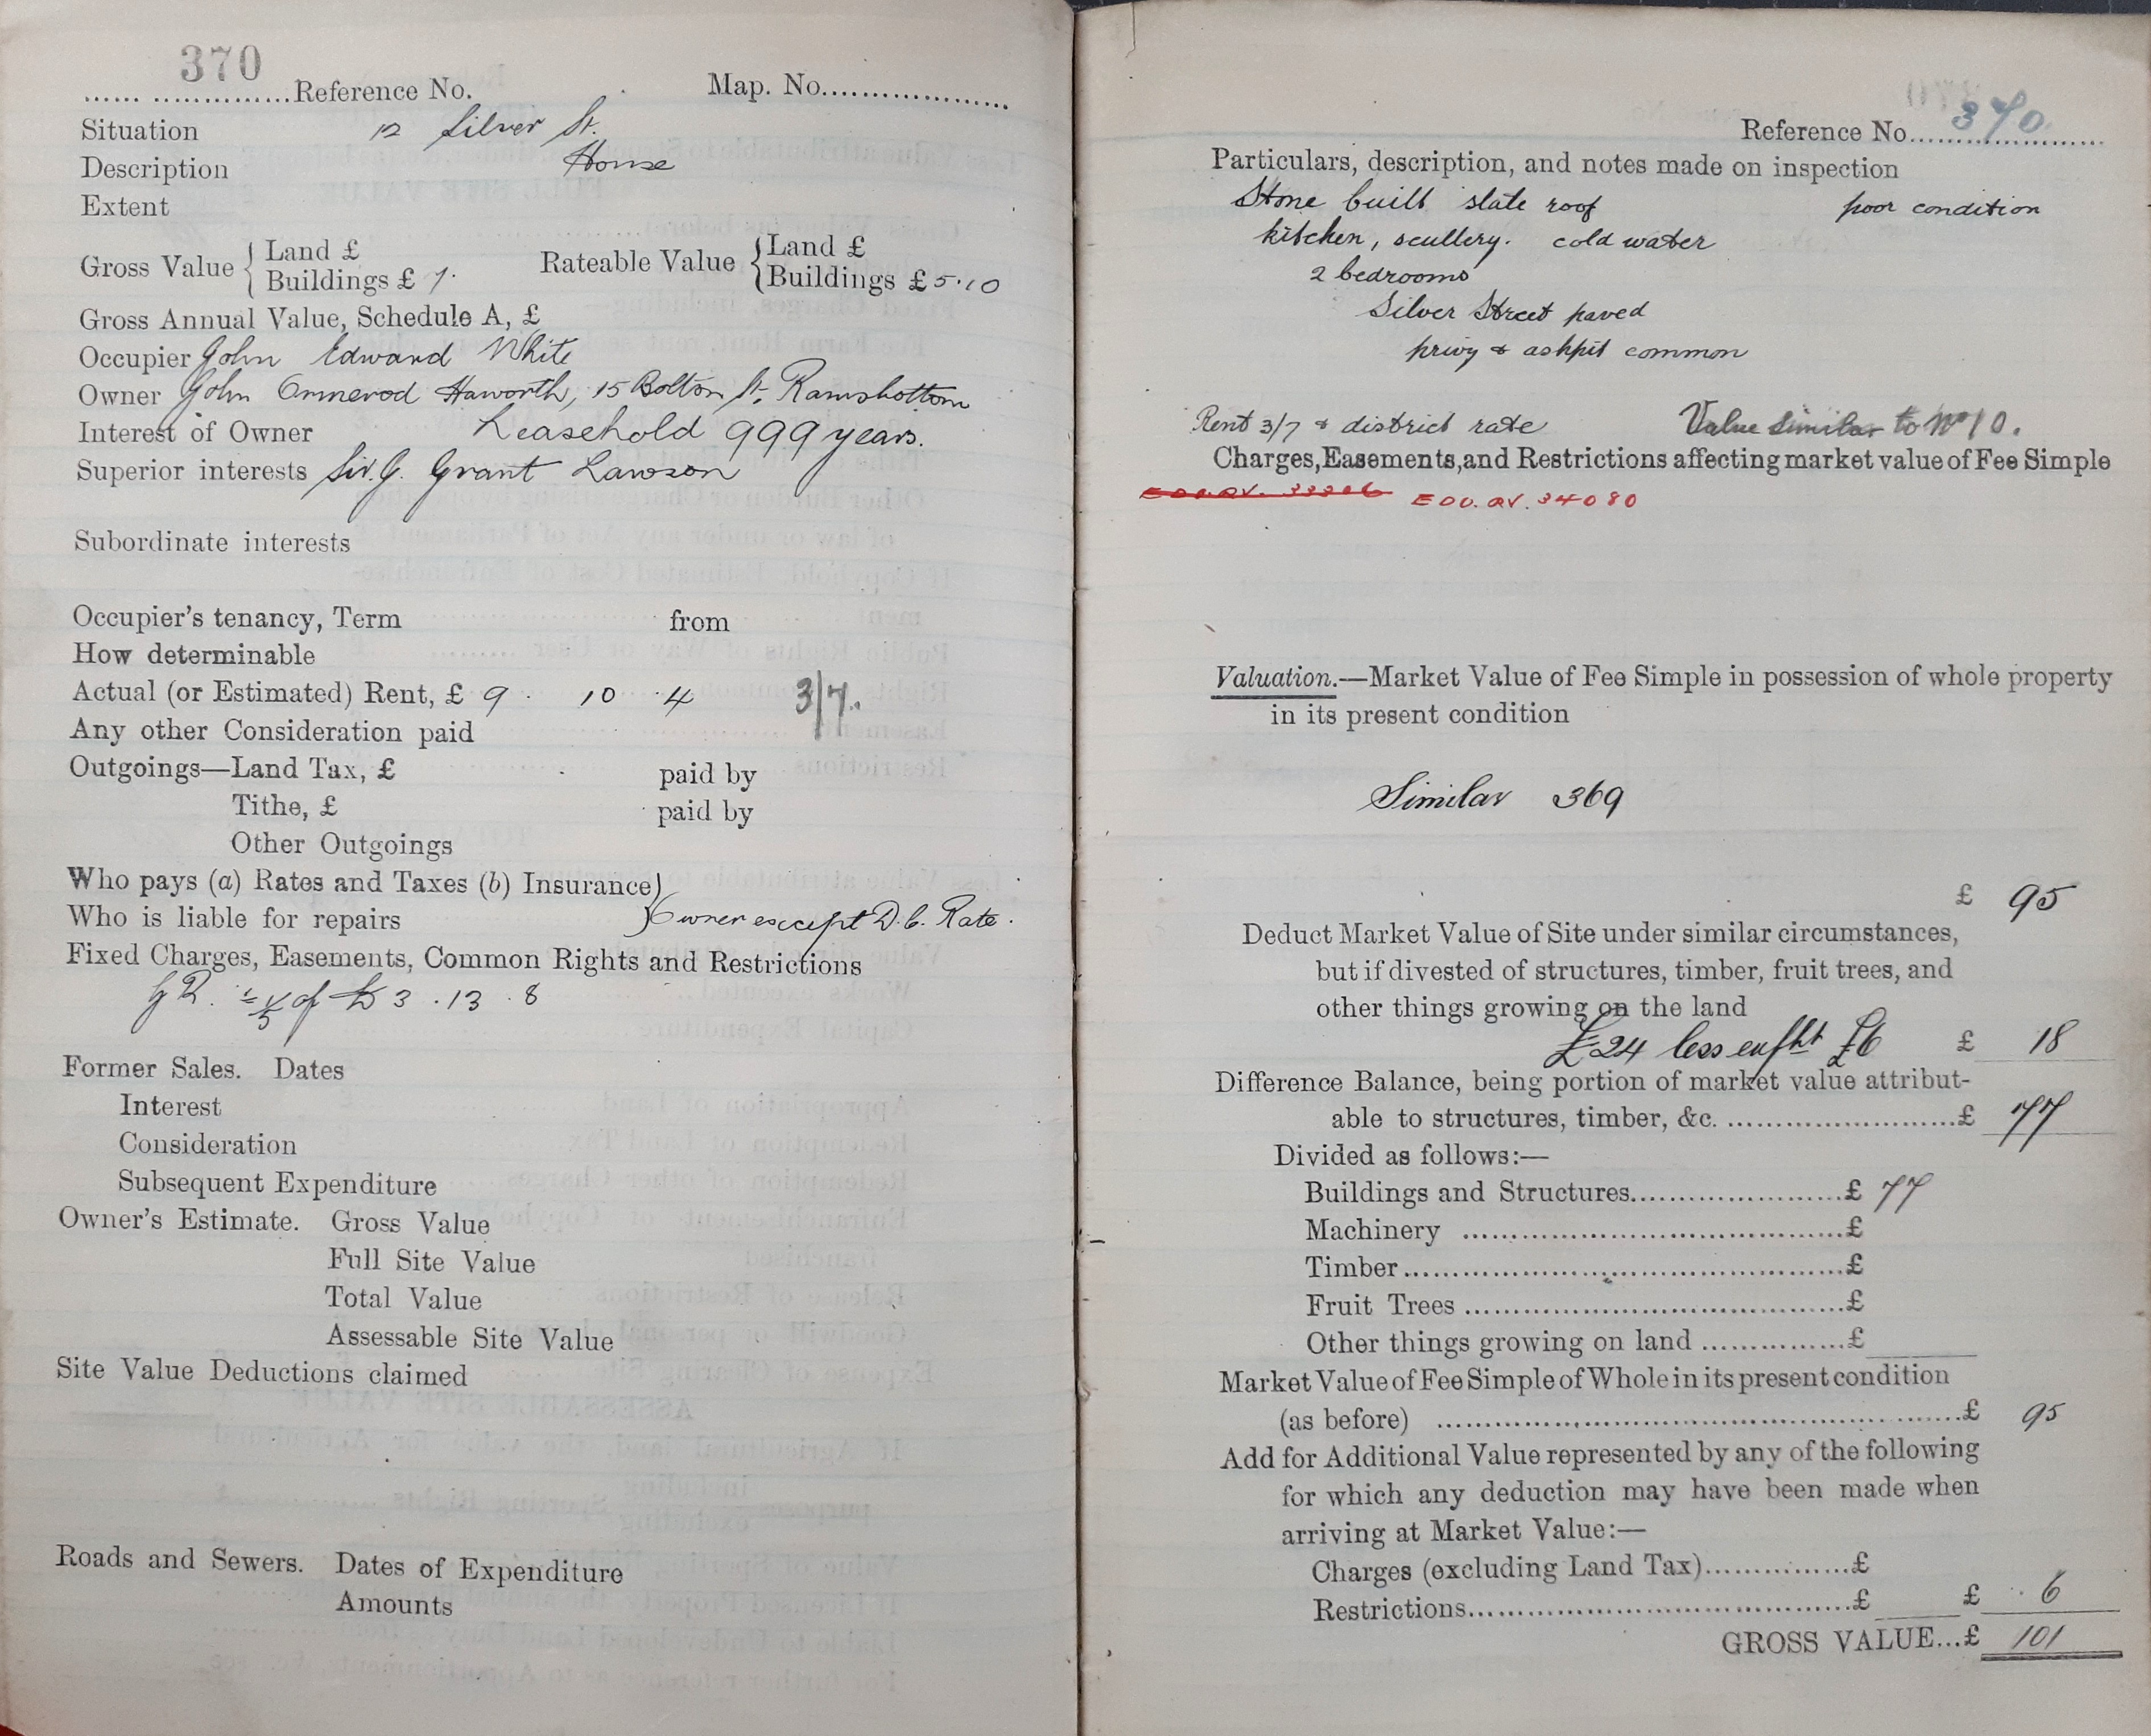 370
Reference No. Map. No.
Situation 12 Silver St.
Description House
Extent
Gross Value { Land £
Buildings £ 7. Rateable Value { Land £
Buildings £ 5.10
Gross Annual Value, Schedule A, £
Occupier John Edward White
Owner John Ormerod Haworth, 15 Bolton St. Ramsbottom
Interest of Owner Leasehold 999 years.
Superior interests Sir. J. Grant Lawson
Subordinate interests
Occupier's tenancy, Term from
How determinable
Actual (or Estimated) Rent, £ 9 . 10 . 4 3/7.
Any other Consideration paid
Outgoings—Land Tax, £ paid by
Tithe, £ paid by
Other Outgoings
Who pays (a) Rates and Taxes (b) Insurance)
Who is liable for repairs } Owner except D.C. Rate.
Fixed Charges, Easements, Common Rights and Restrictions
G R. of £3 . 13 . 8
Former Sales. Dates
Interest
Consideration
Subsequent Expenditure
Owner's Estimate. Gross Value
Full Site Value
Total Value
Assessable Site Value
Site Value Deductions claimed
Roads and Sewers. Dates of Expenditure
Amounts
Reference No. 370
Particulars, description, and notes made on inspection
Stone built slate roof poor condition
kitchen, scullery. cold water
2 bedrooms
Silver Street paved
privy & ashpit common
Rent 3/7 & district rate Value similar to No 10.
Charges, Easements, and Restrictions affecting market value of Fee Simple
EDV. AV. 34080
Valuation.—Market Value of Fee Simple in possession of whole property
in its present condition
Similar 369
£ 95
Deduct Market Value of Site under similar circumstances,
but if divested of structures, timber, fruit trees, and
other things growing on the land
£24 less enfht £6 £ 18
Difference Balance, being portion of market value attribut-
able to structures, timber, &c. £ 77
Divided as follows:—
Buildings and Structures £ 77
Machinery £
Timber £
Fruit Trees £
Other things growing on land £
Market Value of Fee Simple of Whole in its present condition
(as before) £ 95
Add for Additional Value represented by any of the following
for which any deduction may have been made when
arriving at Market Value:—
Charges (excluding Land Tax) £
Restrictions £ £ 6
GROSS VALUE...£ 101